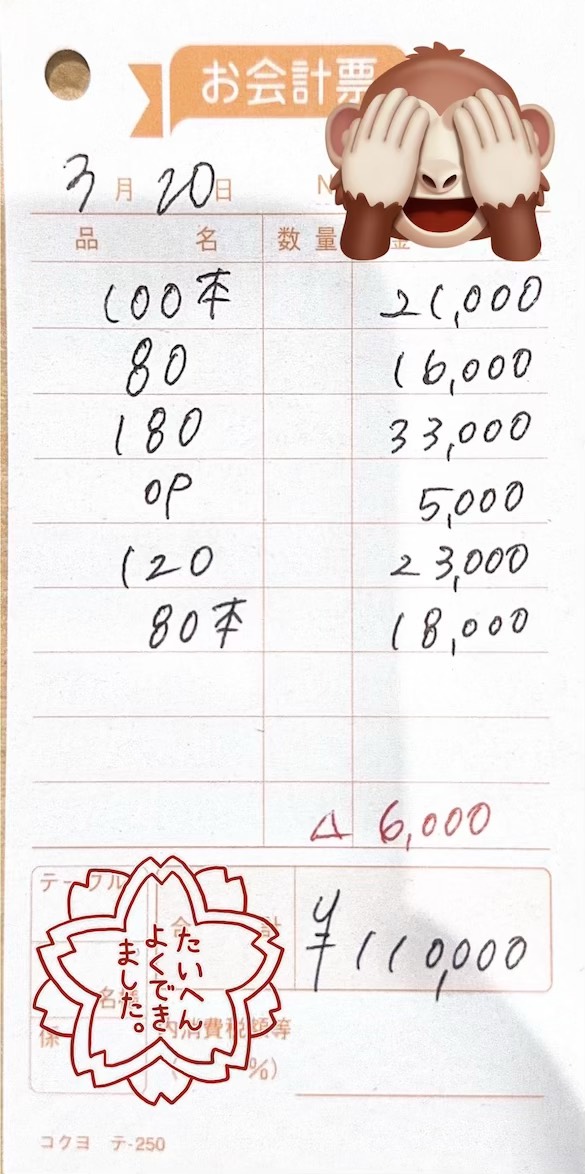 お会計票
3月20日
品名 数量
100本 21,000
80 16,000
180 33,000
OP 5,000
120 23,000
80本 18,000
△ 6,000
合計 ¥110,000
たいへん
よくでき
ました。
内消費税額等
( %)
コクヨ テ-250